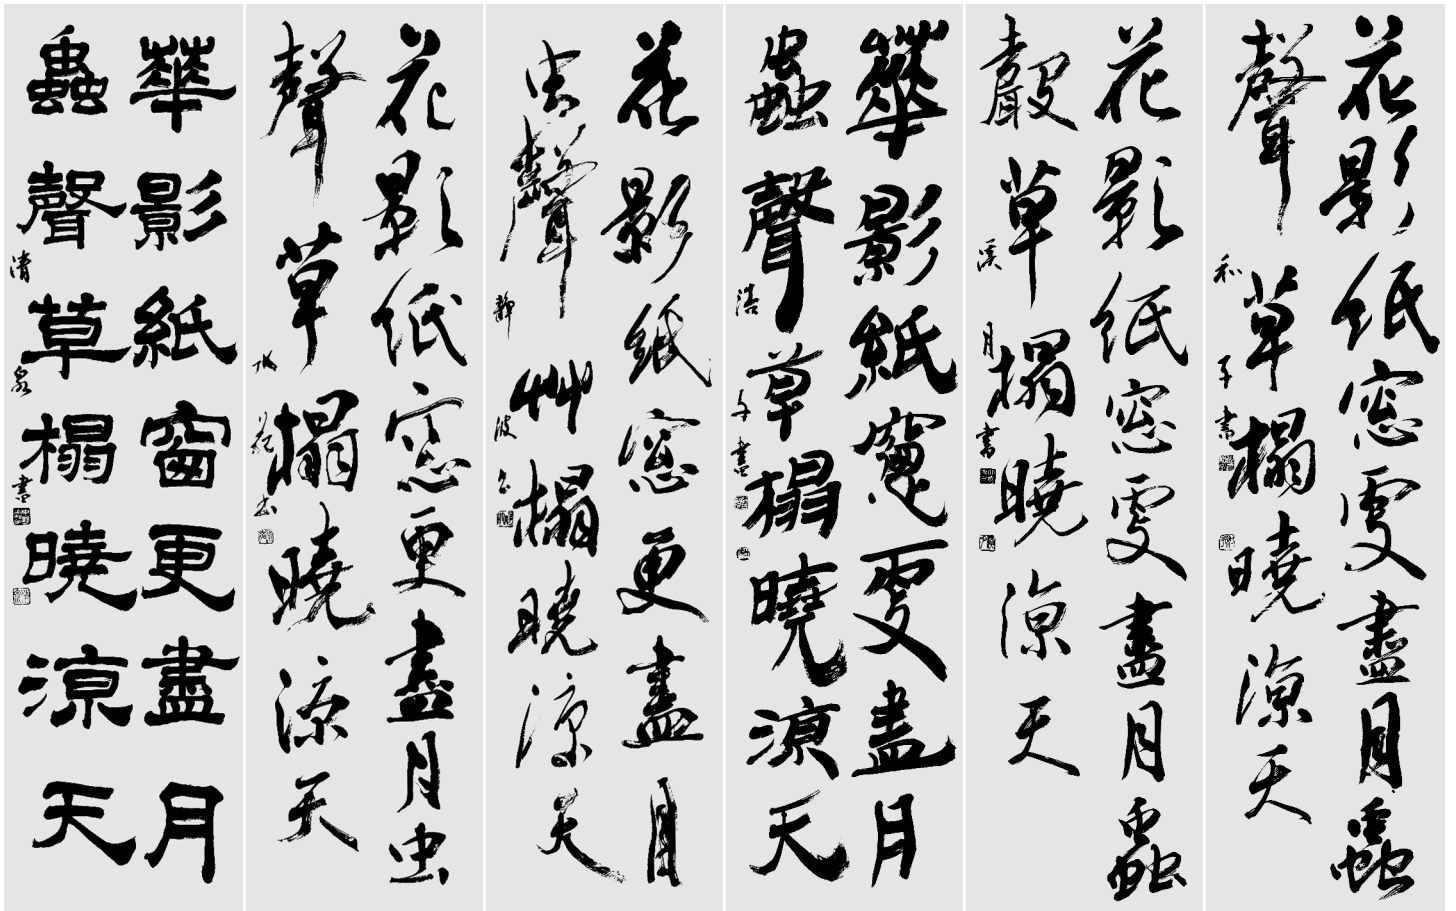 花影纸窓更盡月蟲
聲草榻曉涼天
和子書
花影纸窓更盡月蟲
聲草榻曉涼天
溪月書
華影紙窗更盡月
蟲聲草榻曉涼天
浩子書
花影紙窓更盡月
虫聲艸榻曉涼天
靜波
花影纸窓更盡月虫
聲草榻曉涼天
書
華影紙窗更盡月
蟲聲草榻曉涼天
清泉書